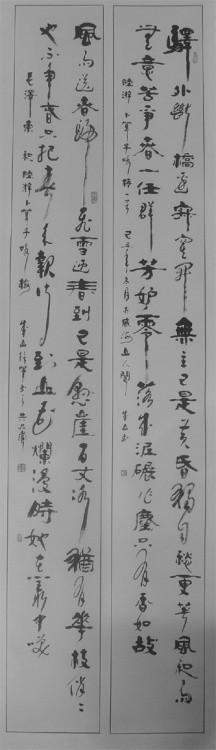 驛外斷橋邊寂寞開無主已是黄昏獨自愁更著風和雨
無意苦爭春一任群芳妒零落成泥碾作塵只有香如故
陸游卜算子咏梅一首
風雨送春歸飛雪迎春到已是懸崖百丈冰猶有華枝俏〻
也不爭春只把春來報待到山花爛漫時她在叢中笑
毛澤東 和陸游卜算子咏梅